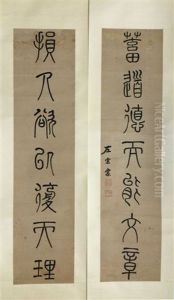 蓄道德而能文章
左宗棠
損人欲以復天理